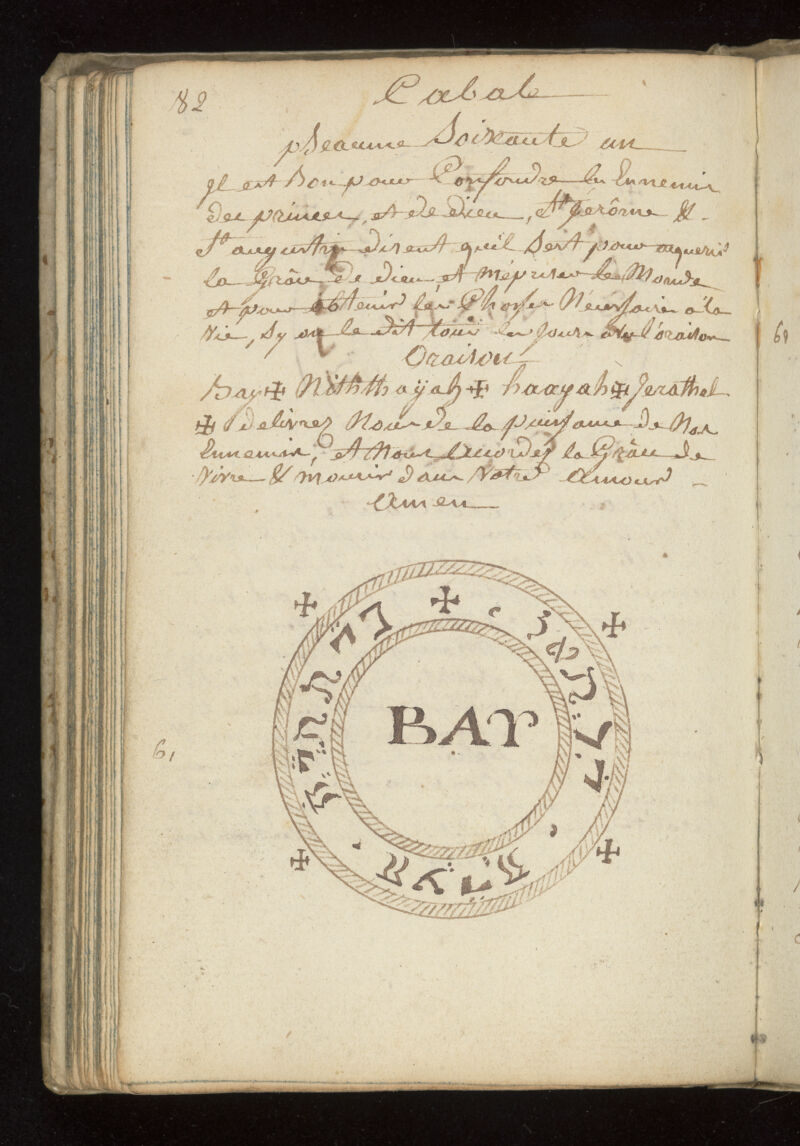 82
Cabale
pseaume Soixante un
Il est Bon pour Confondre les Ennemis
des princes, et de dieu, St Jérôme &
St augustin disent qu'il Sert pour aquerir
la Grâce de dieu, et Mépriser le Monde
et pour obtenir les Choses Nécessaire à la
Vie, Sy on le dit tous les Jours avec l'oraison
Oraison
Bay ✠ Niththayah ✠ haayah ✠ Jerathel
✠ délivrez Nous de la puissance de Nos
Ennemis, et Nous accordés la Grâce de
Vivre & mourir dans Votre Amour
Amen
BAY
61